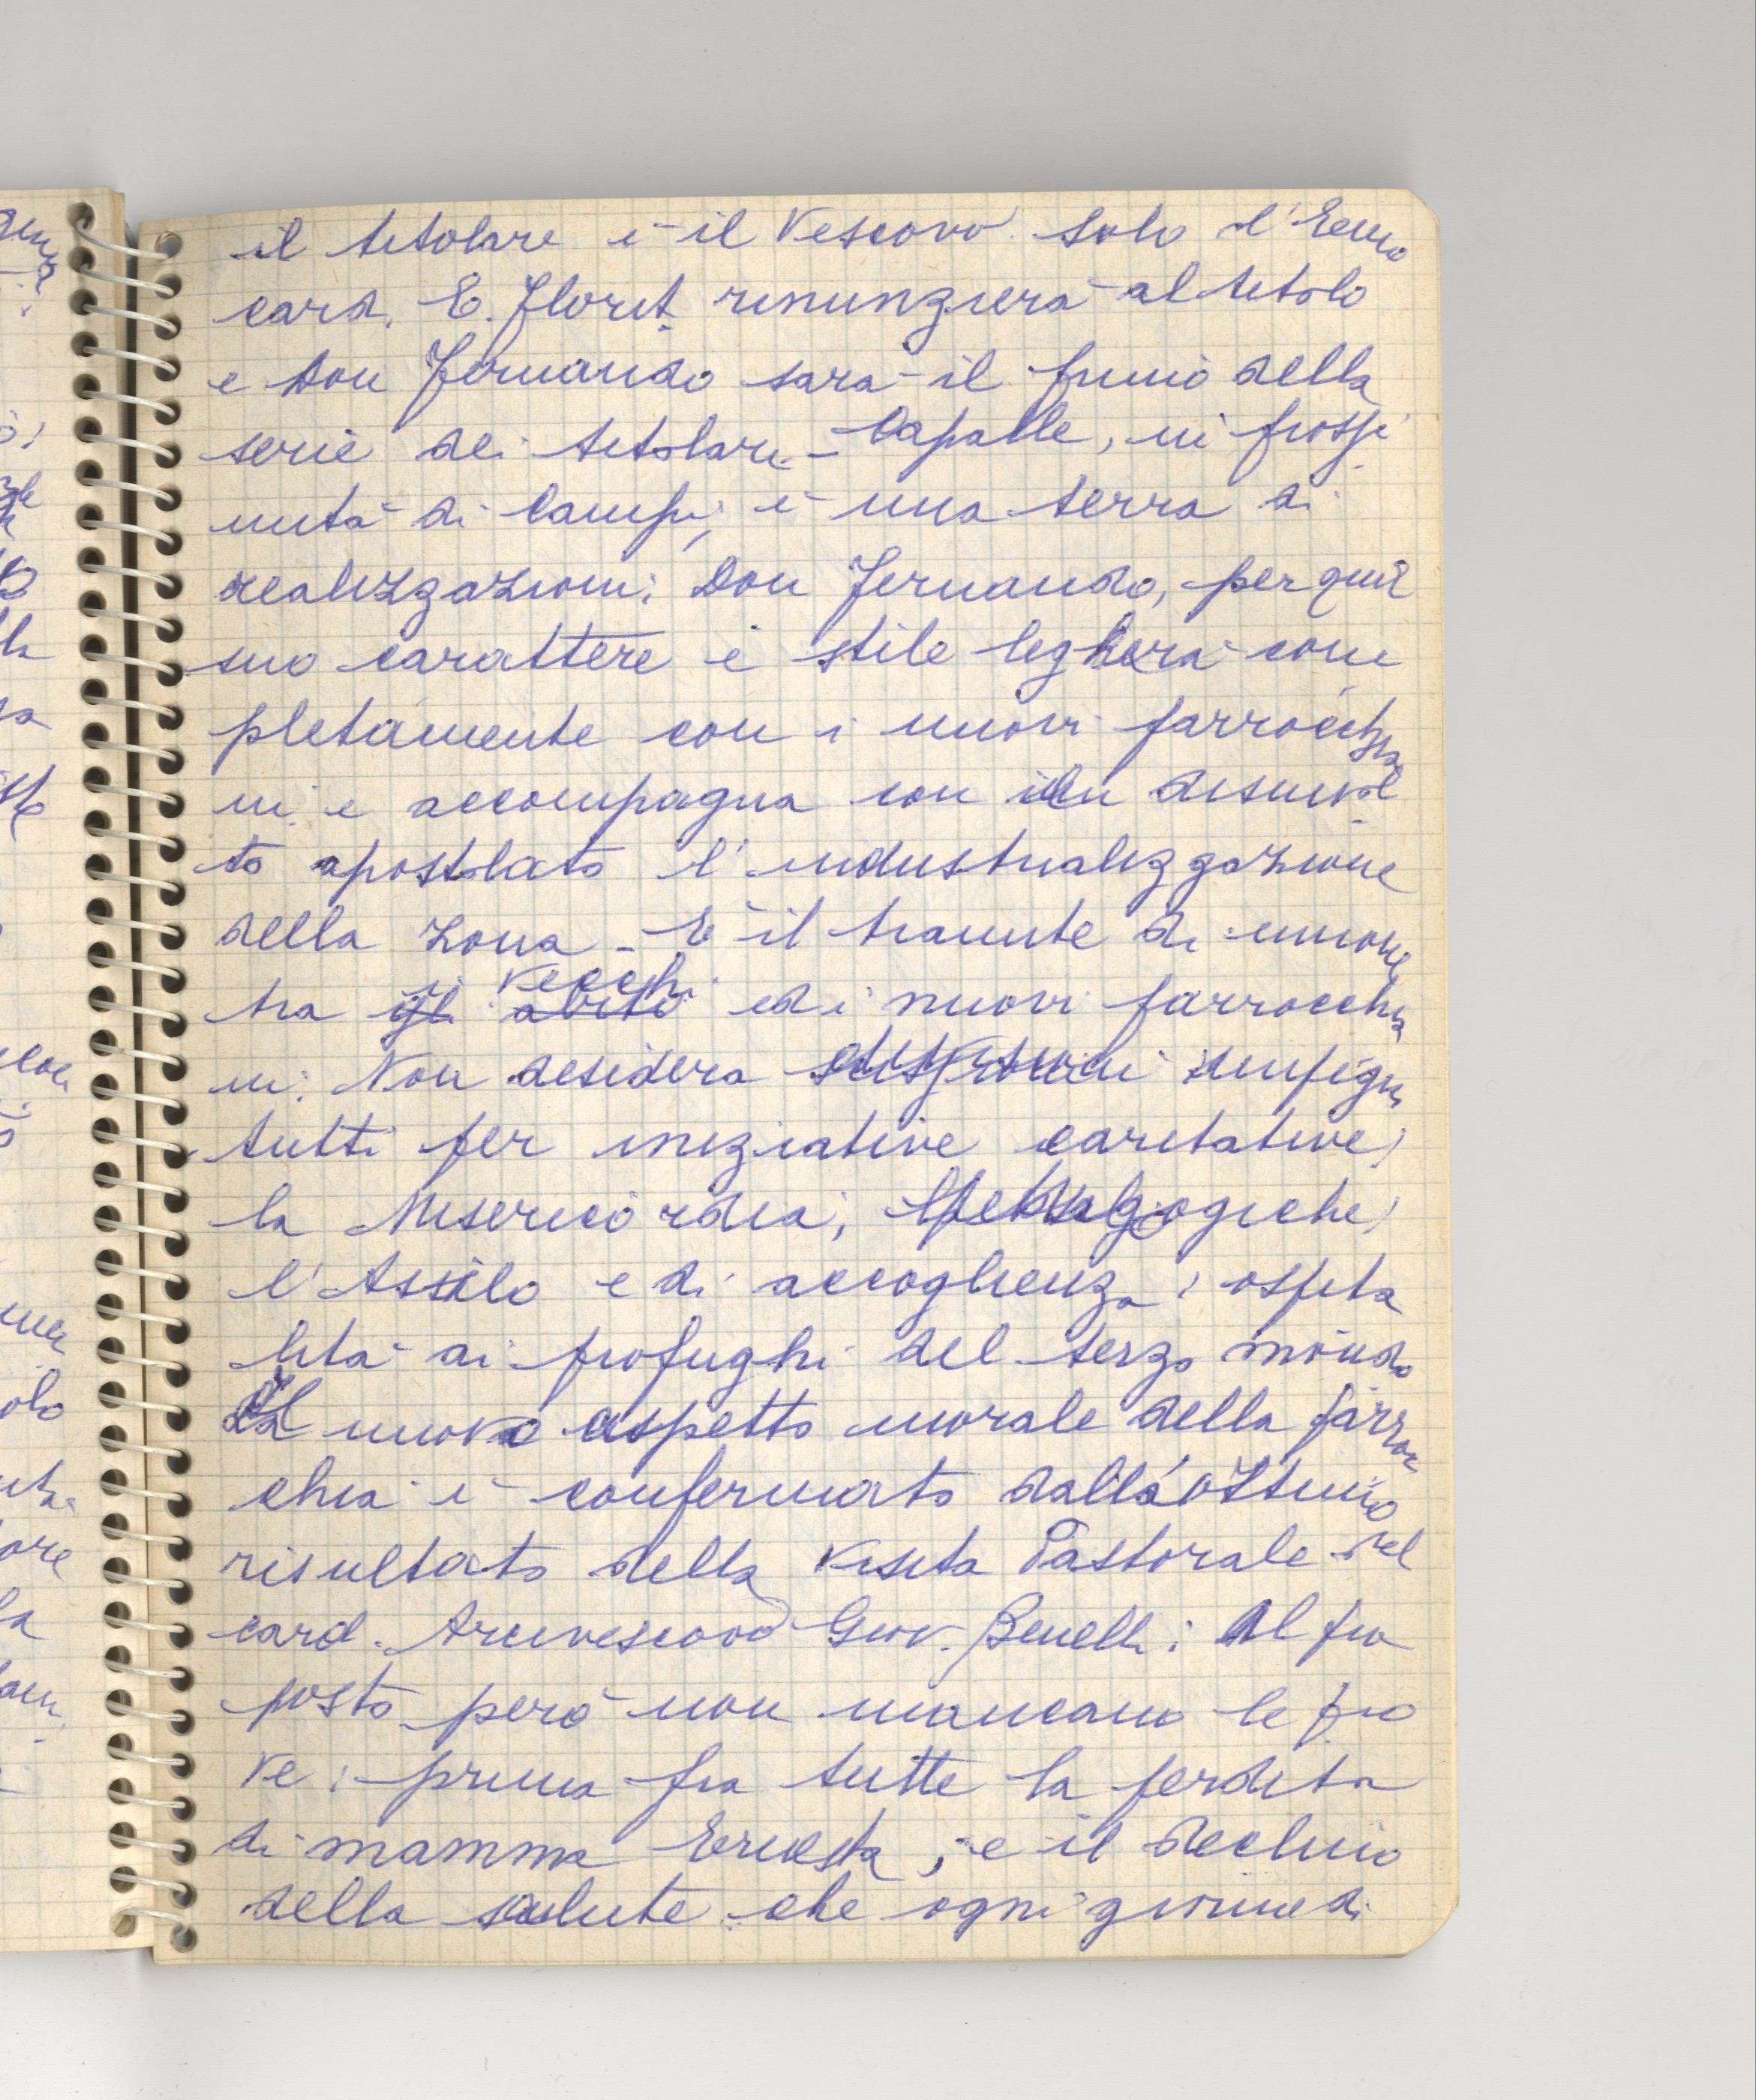 il titolare è il Vescovo. Solo l'Emo
card. E. Florit rinunzierà al titolo
e don Fernando sarà il primo della
serie dei titolari - Capalle, in prossi
mità di Campi, è una terra di
realizzazioni; Don Fernando, per quel
suo carattere e stile legherà com
pletamente con i nuovi parrocchia
ni e accompagna con un disinvol
to apostolato l'industrializzazione
della zona - È il tramite di unione
tra i vecchi ed i nuovi parrocchia
ni. Non desidera impegna
tutti per iniziative caritative;
la Misericordia, pedagogiche;
l'Assilo e di accoglienza; ospita
lità ai profughi del terzo mondo
Il nuovo aspetto morale della parroc
chia è confermato dall'ottimo
risultato della visita Pastorale del
card. Arcivescovo Giov. Benelli; Al pro
posto però non mancano le pro
ve; prima fra tutte la perdita
di mamma Ernesta, e il declino
della salute che ogni giorno di